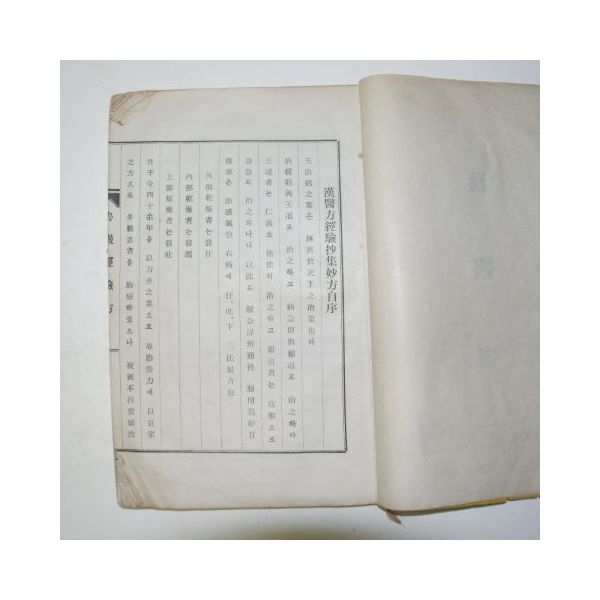 漢醫方經驗抄集妙方自序
夫治病之策은 猶別於天下之治策也하
病緩則與王道로 治之하고 病急則與霸道로 治之하라
王道者는 仁義로 徐徐히 治之하고 霸道者는 攻擊으로
急急히 治之하나니 以此로 緩急詳辨而後
即感氣든 右病에 汗、吐、下 三法最古也
外部乾燥者는 發汗
內部乾燥者는 發瀉
上部煩燥者는 發吐
吾于今四十余年을 以刀圭之業으로 專治勞力에 以百家
之方으로 多數患者를 治療하였으나 複雜不得要領故
經驗方